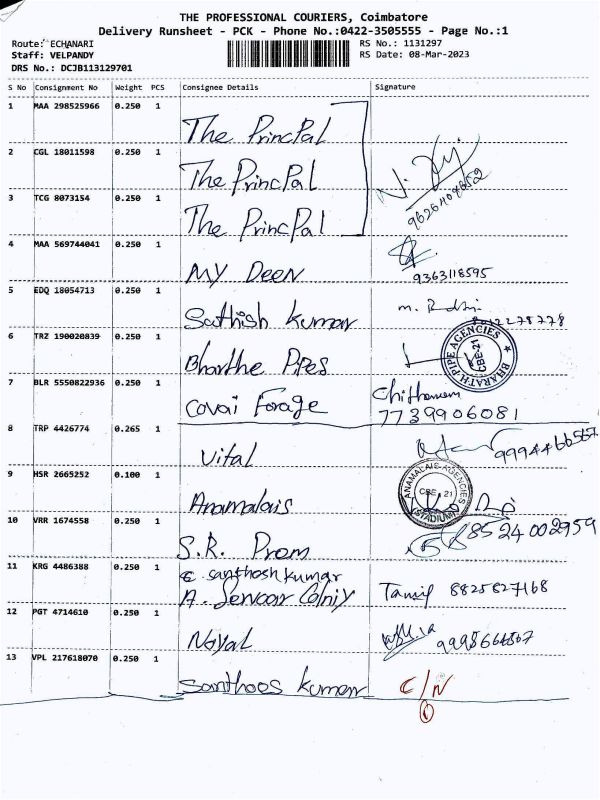 THE PROFESSIONAL COURIERS, Coimbatore
Delivery Runsheet - PCK - Phone No.:0422-3505555 - Page No.:1
Route: ECHANARI RS No.: 1131297
Staff: VELPANDY RS Date: 08-Mar-2023
DRS No.: DCJB113129701
S No Consignment No Weight PCS Consignee Details Signature
1 MAA 298525966 0.250 1
The PrincPal
2 CGL 18011598 0.250 1
The PrincPal
9626404652
3 TCG 8073154 0.250 1
The PrincPal
4 MAA 569744041 0.250 1
My Deen 9363118595
5 EDQ 18054713 0.250 1
Sathish kumar
6 TRZ 190020839 0.250 1
Bharthe Pipes
BHARATH PIPE AGENCIES
CBE-21
7 BLR 5550822936 0.250 1
Covai Forage 7739906081
8 TRP 4426774 0.265 1
Vital
9 HSR 2665252 0.100 1
Anamalais
ANAMALAIS-AGENCIES
CBE 21
STADIUM
10 VRR 1674558 0.250 1
S.R. Prom 8524002959
11 KRG 4486388 0.250 1
santhosh kumar
Tamil 8825827168
12 PGT 4714610 0.250 1
Noyal
13 VPL 217618070 0.250 1
Santhoos kumar C/N
1